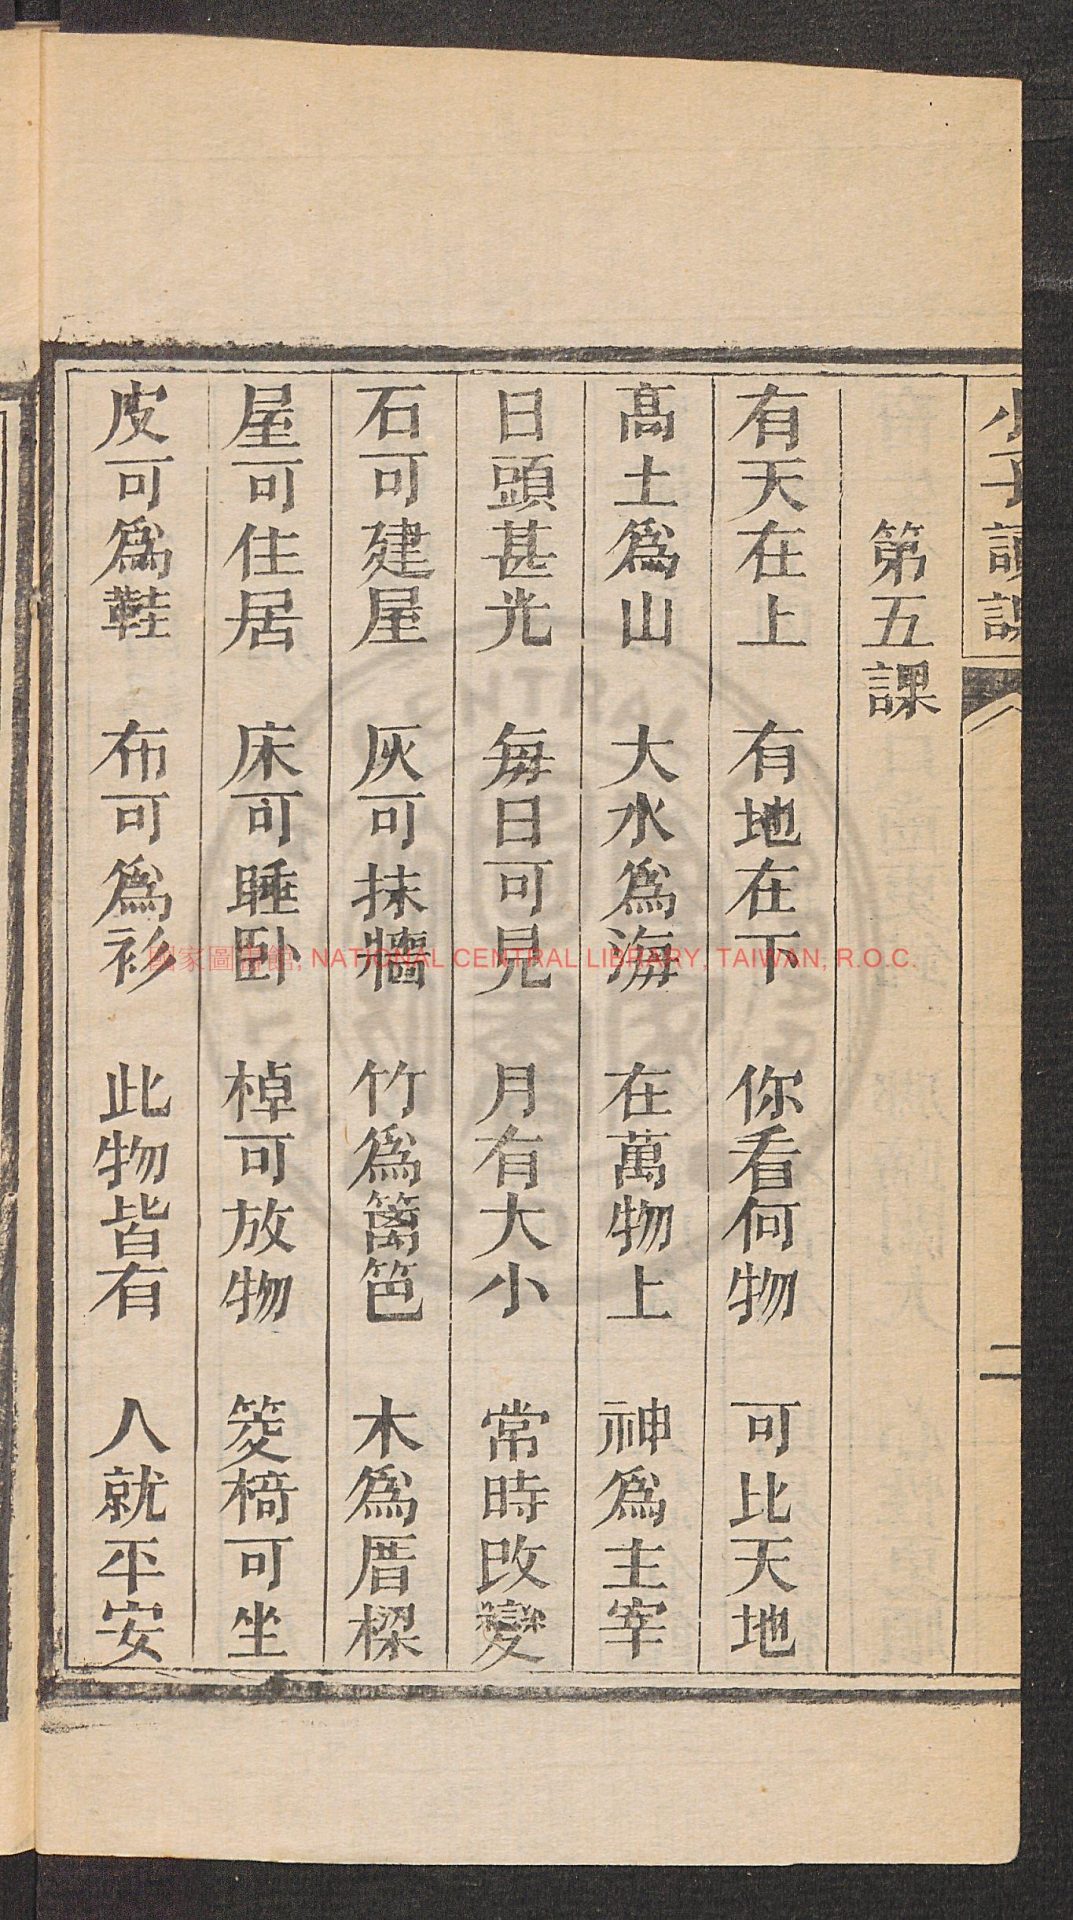 小子讀課
二
第五課
有天在上 有地在下 你看何物 可比天地
高土爲山 大水爲海 在萬物上 神爲主宰
日頭甚光 每日可見 月有大小 常時改變
石可建屋 灰可抹牆 竹爲篱笆 木爲厝樑
屋可住居 床可睡卧 棹可放物 椅可坐
皮可爲鞋 布可爲衫 此物皆有 人就平安
國家圖書館, NATIONAL CENTRAL LIBRARY, TAIWAN, R.O.C.